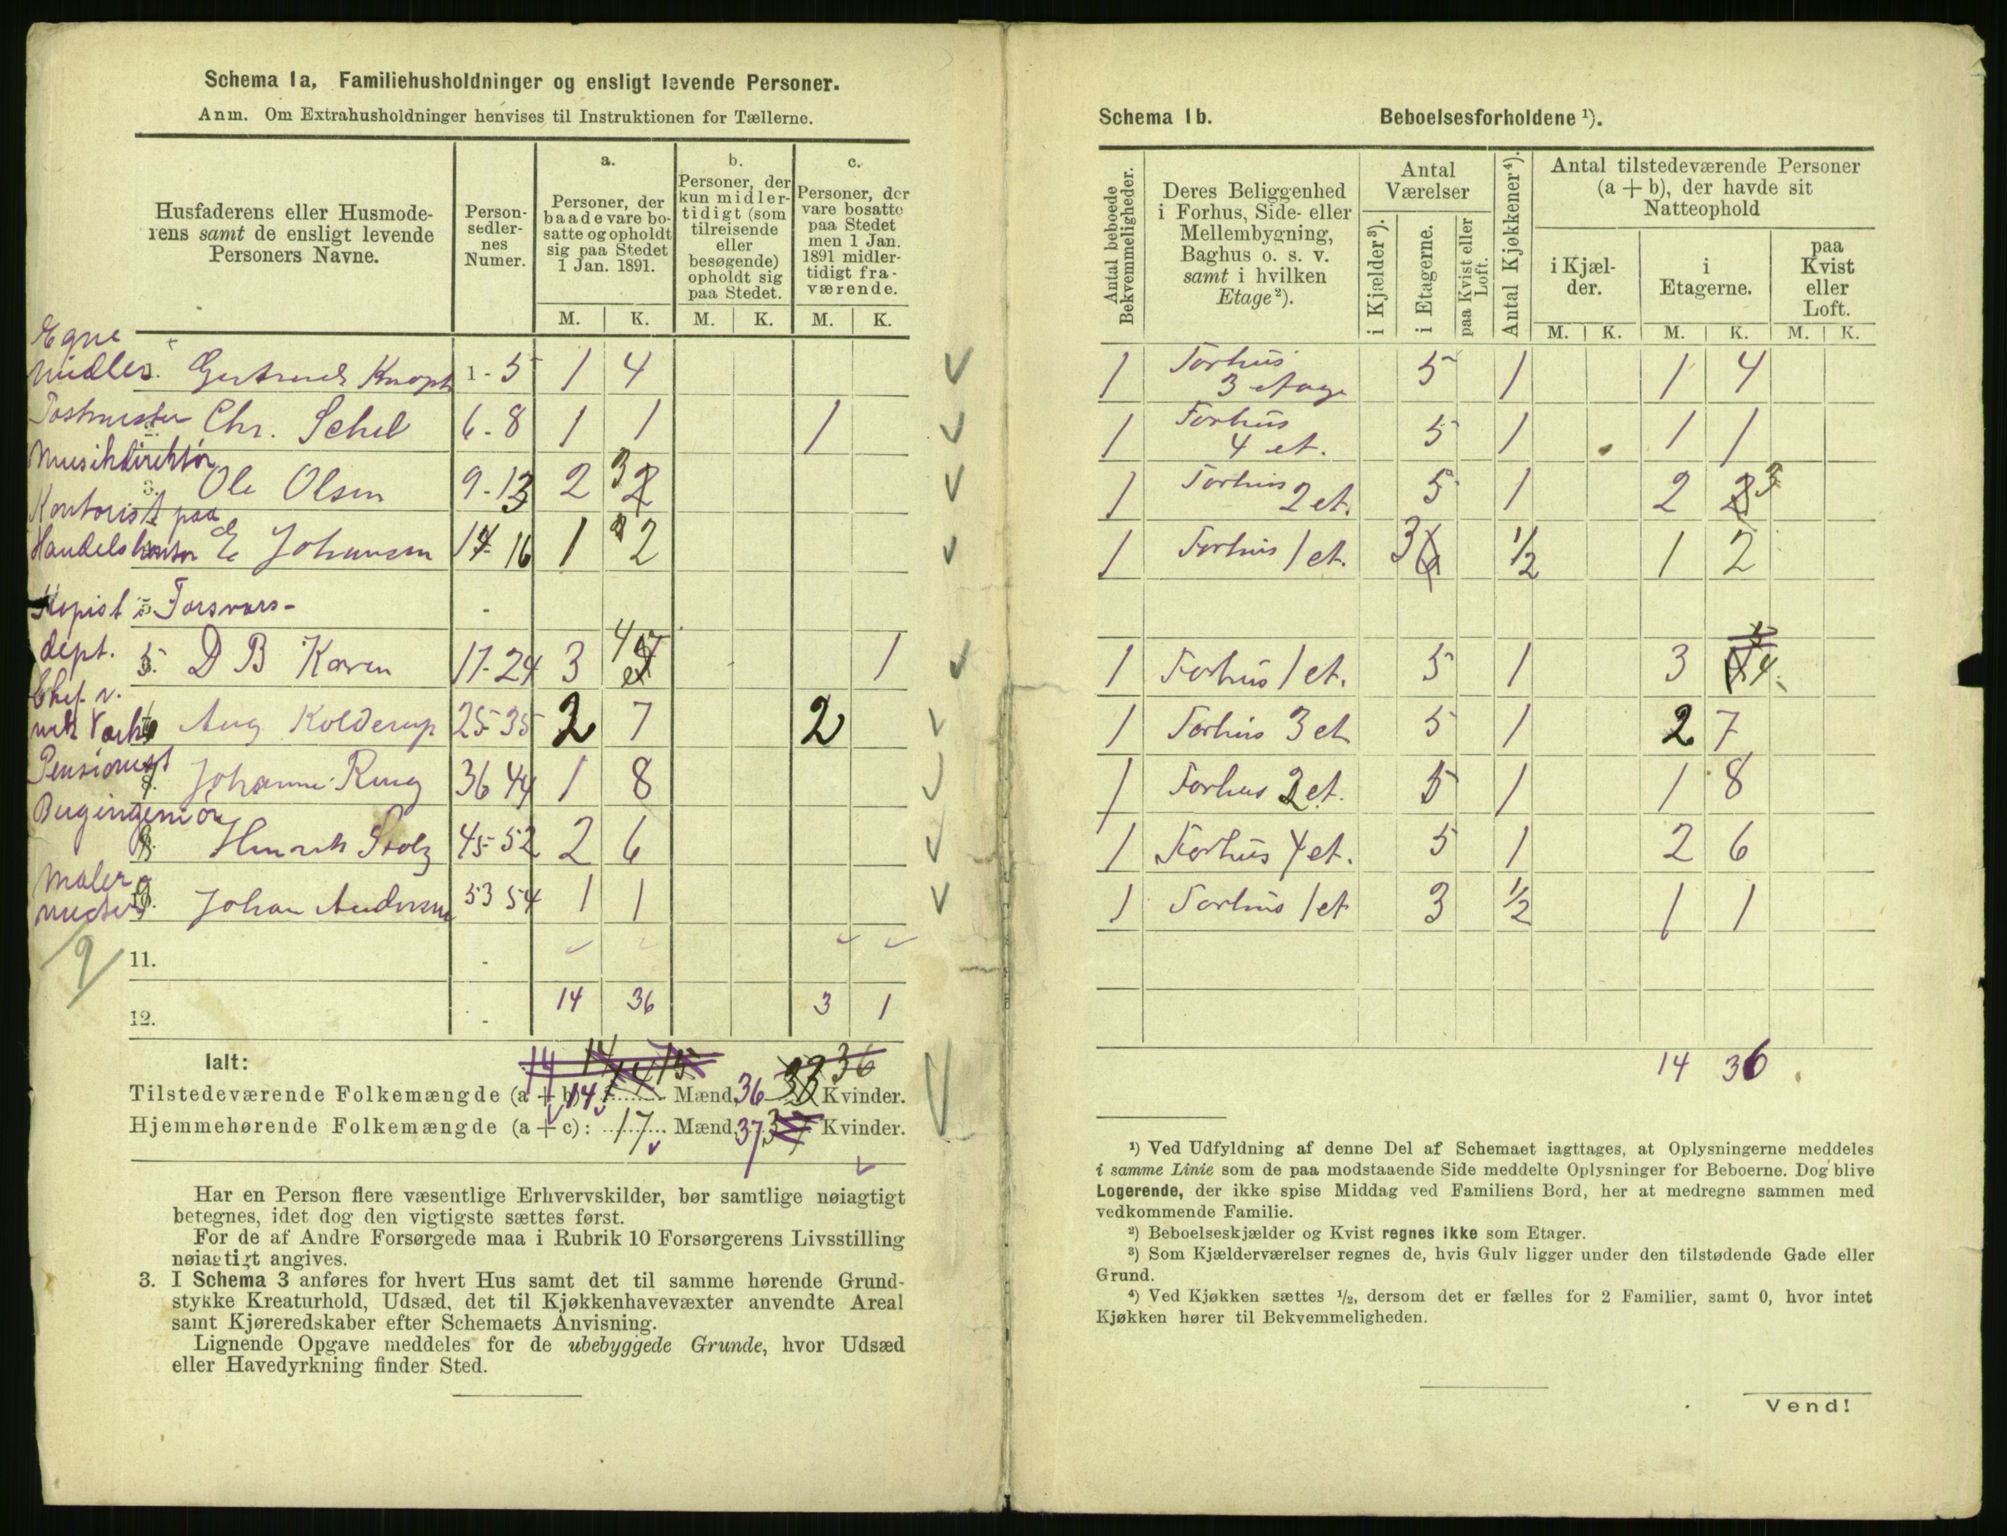 Schema 1a, Familiehusholdninger og ensligt levende Personer.
Anm. Om Extrahusholdninger henvises til Instruktionen for Tællerne.
Husfaderens eller Husmode-
rens samt de ensligt levende
Personers Navne.
Person-
sedler-
nes
Numer.
a.
Personer, der
baade vare bo-
satte og opholdt
sig paa Stedet
1 Jan. 1891.
b.
Personer, der
kun midler-
tidigt (som
tilreisende
eller
besøgende)
opholdt sig
paa Stedet.
c.
Personer, der
vare bosatte
paa Stedet
men 1 Jan.
1891 midler-
tidigt fra-
værende.
M. K. M. K. M. K.
Egne
midler Gertrud Knoph 1-5 1 4
Postmester Chr. Schel 6-8 1 1 1
Musikdirektør
3. Ole Olsen 9-13 2 3 2
Kontorist paa
Handelskontor E Johansen 14-16 1 2
Kopist i Forsvars-
dept. 5. D B Koren 17-24 3 4 1
Chef v.
Aug Kolderup 25-35 2 7 2
Pensionist
Johanne Ring 36 44 1 8
Bergingeniør
Henrik Stolz 45-52 2 6
Maler
mester Johan Andersen 53 54 1 1
9
11.
14 36 3 1
12.
Ialt:
14 14 15 33 36
Tilstedeværende Folkemængde (a + b): 14 Mænd, 36 Kvinder.
Hjemmehørende Folkemængde (a + c): 17 Mænd, 37 Kvinder.
Har en Person flere væsentlige Erhvervskilder, bør samtlige nøiagtigt
betegnes, idet dog den vigtigste sættes først.
For de af Andre Forsørgede maa i Rubrik 10 Forsørgerens Livsstilling
nøiagtigt angives.
3. I Schema 3 anføres for hvert Hus samt det til samme hørende Grund-
stykke Kreaturhold, Udsæd, det til Kjøkkenhavevæxter anvendte Areal
samt Kjøreredskaber efter Schemaets Anvisning.
Lignende Opgave meddeles for de ubebyggede Grunde, hvor Udsæd
eller Havedyrkning finder Sted.
Schema 1b. Beboelsesforholdene ¹).
Antal beboede
Bekvemmeligheder.
Deres Beliggenhed
i Forhus, Side- eller
Mellembygning,
Baghus o. s. v.
samt i hvilken
Etage²).
Antal
Værelser
i Kjælder³).
i Etagerne.
paa Kvist eller
Loft.
Antal Kjøkkener⁴).
Antal tilstedeværende Personer
(a + b), der havde sit
Natteophold
i Kjæl-
der.
i
Etagerne.
paa
Kvist
eller
Loft.
M. K. M. K. M. K.
1 Forhus
3 etage 5 1 1 4
1 Forhus
4 et. 5 1 1 1
1 Forhus
2 et. 5 1 2 2 3
1 Forhus 1 et. 3 6 1/2 1 2
1 Forhus 1 et. 5 1 3 4
1 Forhus 3 et 5 1 2 7
1 Forhus 2 et. 5 1 1 8
1 Forhus 4 et. 5 1 2 6
1 Forhus 1 et 3 1/2 1 1
14 36
¹) Ved Udfyldning af denne Del af Schemaet iagttages, at Oplysningerne meddeles
i samme Linie som de paa modstaaende Side meddelte Oplysninger for Beboerne. Dog blive
Logerende, der ikke spise Middag ved Familiens Bord, her at medregne sammen med
vedkommende Familie.
²) Beboelseskjælder og Kvist regnes ikke som Etager.
³) Som Kjælderværelser regnes de, hvis Gulv ligger under den tilstødende Gade eller
Grund.
⁴) Ved Kjøkken sættes ¹/₂, dersom det er fælles for 2 Familier, samt 0, hvor intet
Kjøkken hører til Bekvemmeligheden.
Vend!